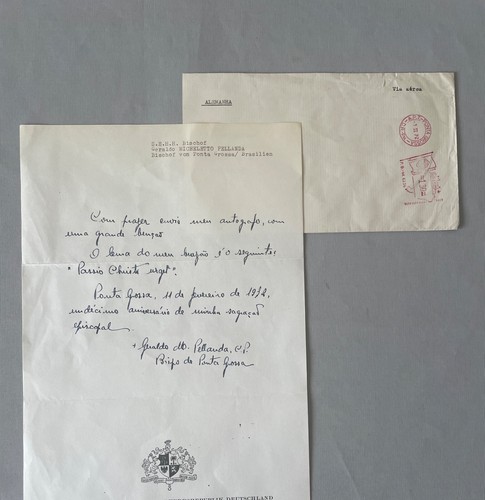 Via aérea
ALEMANHA
S.E.H.H. Bischof
Geraldo MICHELETTO PELLANDA
Bischof von Ponta Grossa/ Brasilien
Com prazer envio meu autografo, com
uma grande benção
O lema do meu brazão é o seguinte:
"Passio Christi urget".
Ponta Grossa, 11 de fevereiro de 1972,
undécimo aniversário de minha sagração
episcopal.
+ Geraldo M. Pellanda, C.P.
Bispo de Ponta Grossa
DEUTSCHLAND